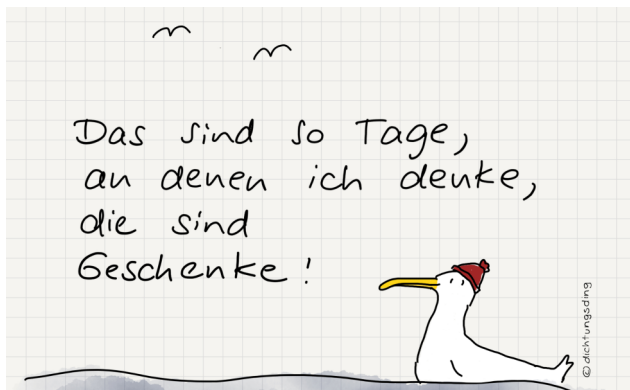 Das sind so Tage,
an denen ich denke,
die sind
Geschenke!
© dichtungsding